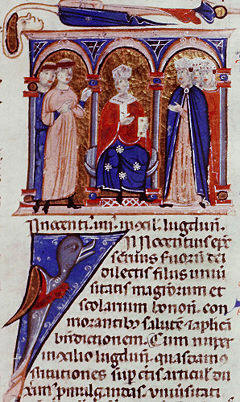 Innocenti. iiii. in ↄcil. lugdun.
INnocentius eps
seruus seruoꝝ dei
dilectis filiis uniuer
sitatis magistroꝝ et
scolarium bonon. com
morantibꝫ salutē ⁊ aplicā
bndictionem. Cum nuper
in ↄcilio lugdun. quasdam ↄ
stitutiones sup certis articul. dux
im promulgandas, uniuersitati